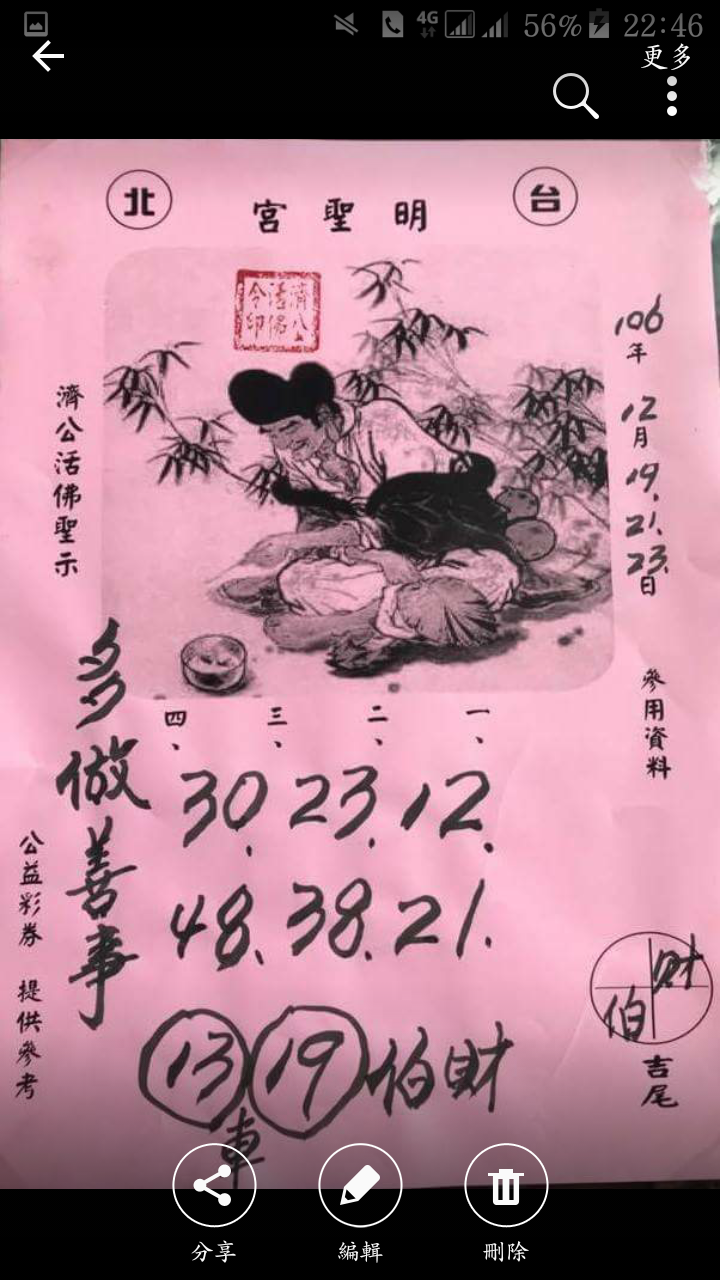 4G 56% 22:46
更多
台 北
明聖宮
濟公活佛令印
106年12月19.21.23.日
參用資料
濟公活佛聖示
一、二、三、四、
12. 23. 30.
21. 38. 48.
多做善事
財伯 19 13
車
公益彩券 提供參考
財
伯
吉尾
分享 編輯 刪除